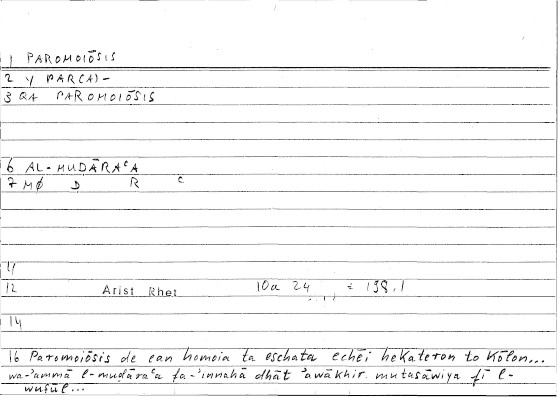 1 PAROMOIŌSIS
2 Y PAR(A)-
3 QA PAROMOIŌSIS
6 AL-MUḌĀRAᶜA
7 MØ Ḍ R ᶜ
11
12 Arist Rhet 10a 24 = 198,1
14
16 Paromoiōsis de ean homoia ta eschata echēi hekateron to kōlon...
wa-'ammā l-muḍāraᶜa fa-'innahā dhāt 'awākhir mutasāwiya fī l-
wuṣūl...